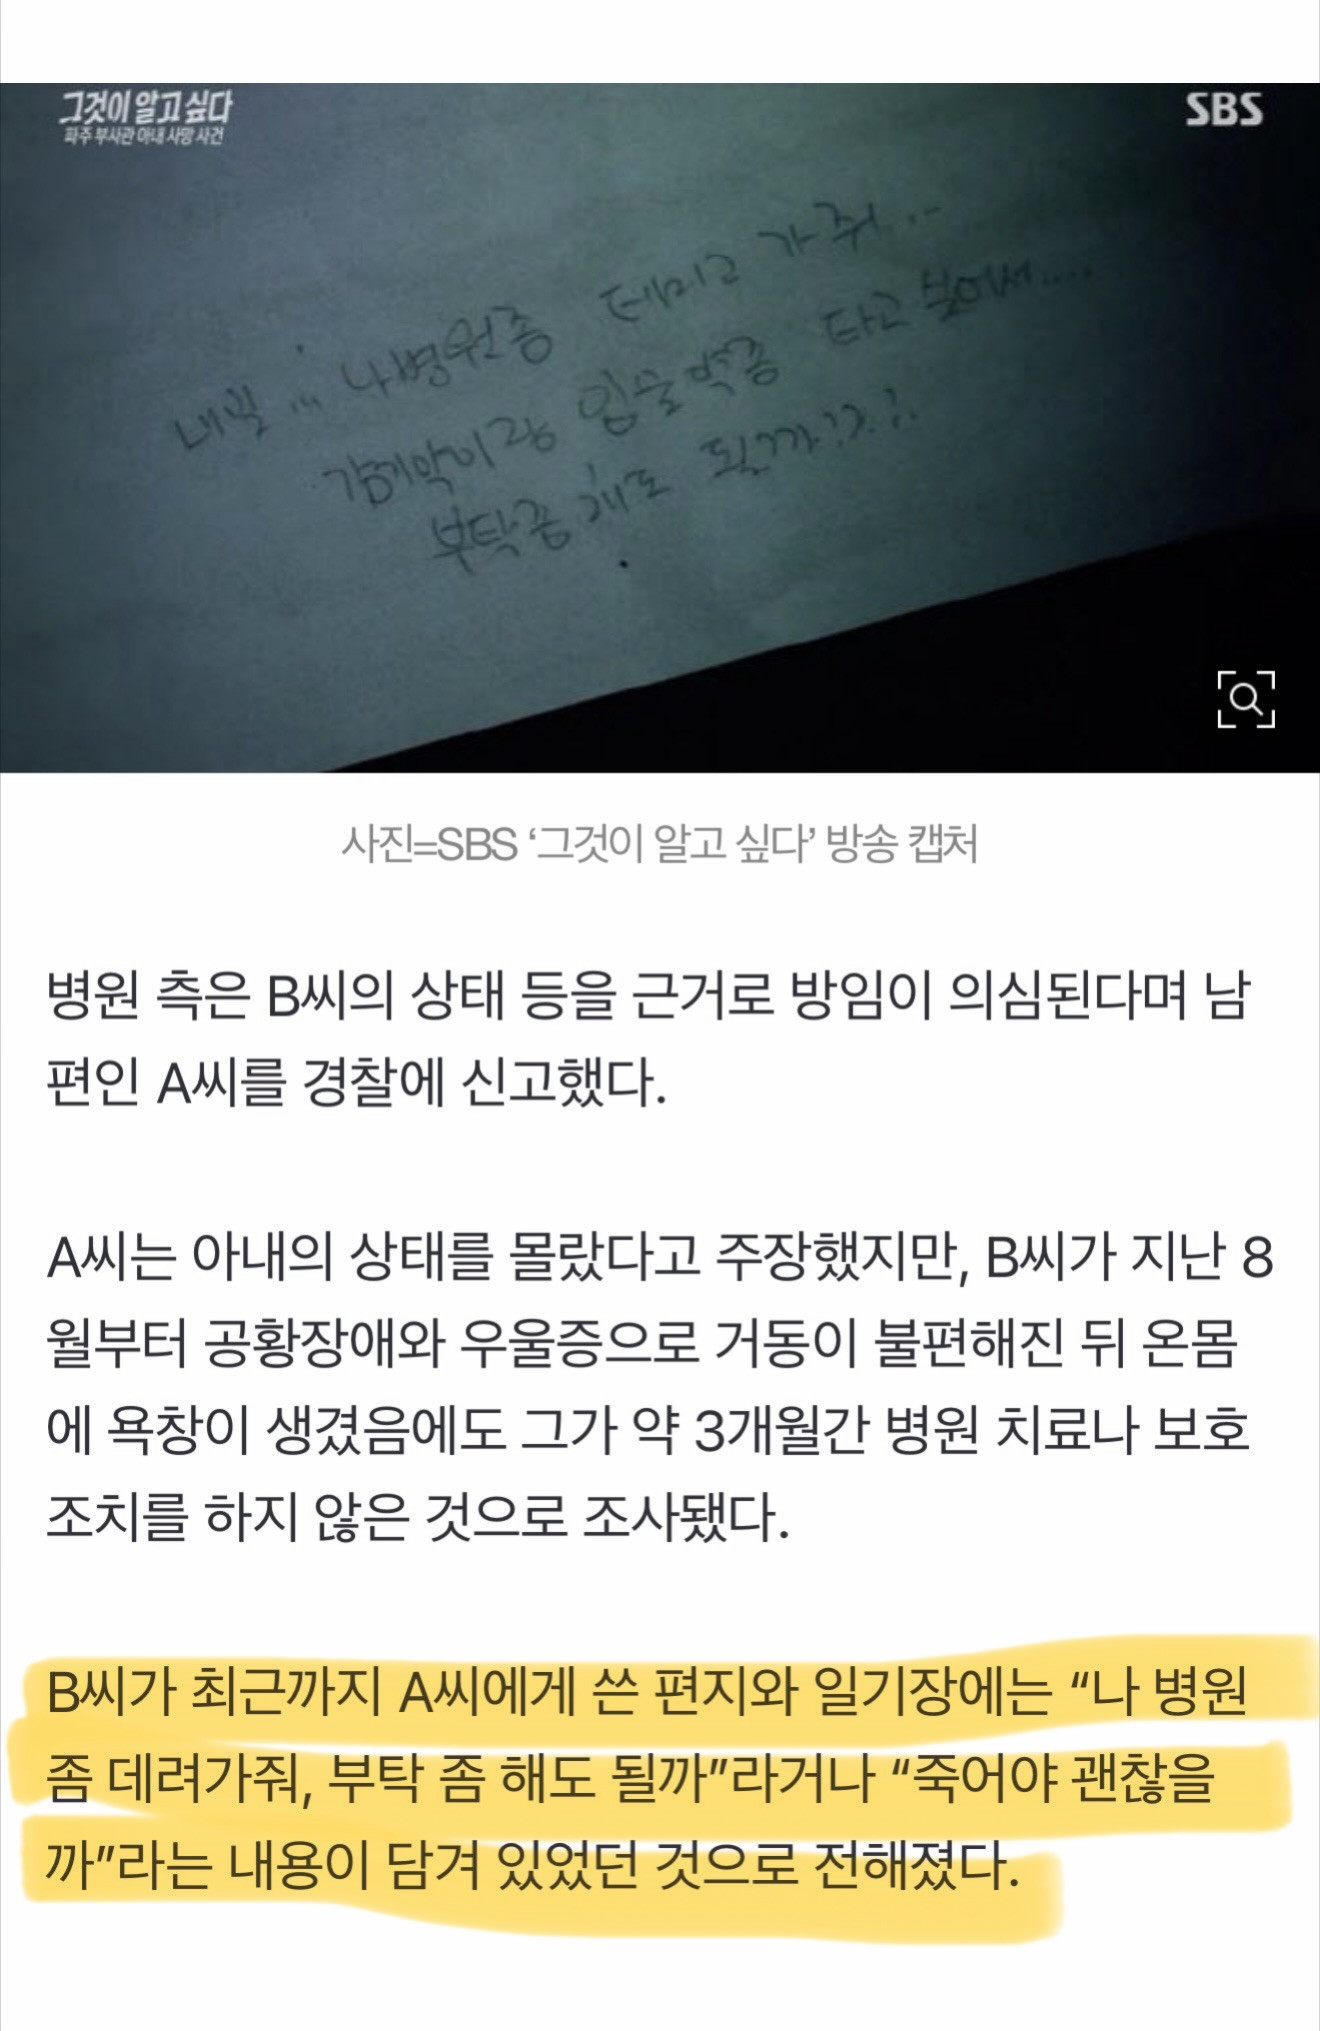 그것이 알고 싶다
파주 부사관 아내 사망 사건
SBS
내일... 나 병원좀 데리고 가줘...
이랑 입술 좀 타고
부탁좀 해도 될까?
사진=SBS ‘그것이 알고 싶다’ 방송 캡처
병원 측은 B씨의 상태 등을 근거로 방임이 의심된다며 남
편인 A씨를 경찰에 신고했다.
A씨는 아내의 상태를 몰랐다고 주장했지만, B씨가 지난 8
월부터 공황장애와 우울증으로 거동이 불편해진 뒤 온몸
에 욕창이 생겼음에도 그가 약 3개월간 병원 치료나 보호
조치를 하지 않은 것으로 조사됐다.
B씨가 최근까지 A씨에게 쓴 편지와 일기장에는 “나 병원
좀 데려가줘, 부탁 좀 해도 될까”라거나 “죽어야 괜찮을
까”라는 내용이 담겨 있었던 것으로 전해졌다.